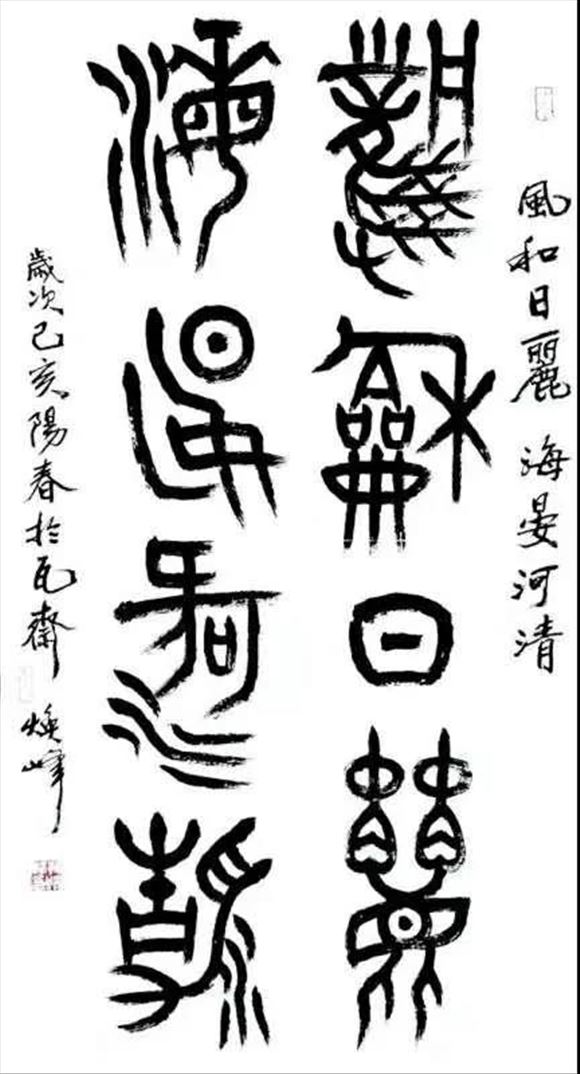 風和日麗 海晏河清
風龢日麗
海晏河清
歲次己亥陽春於瓦齋 煥峰